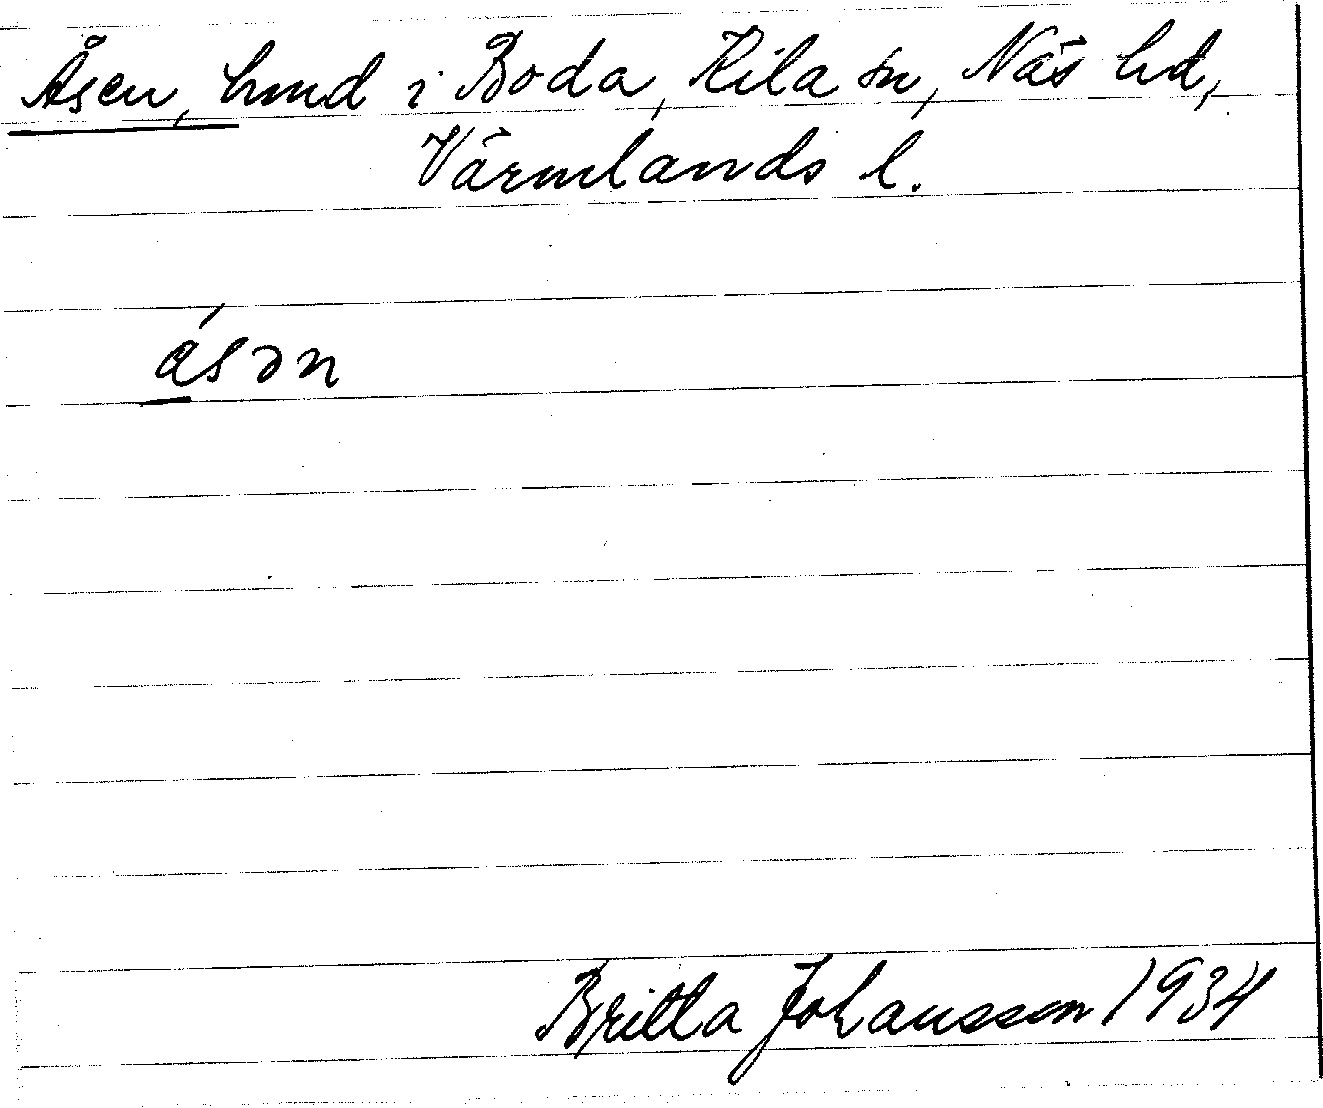 Åsen, hmd i Boda, Kila sn, Näs hd,
Värmlands l.
ásən
Britta Johansson 1934